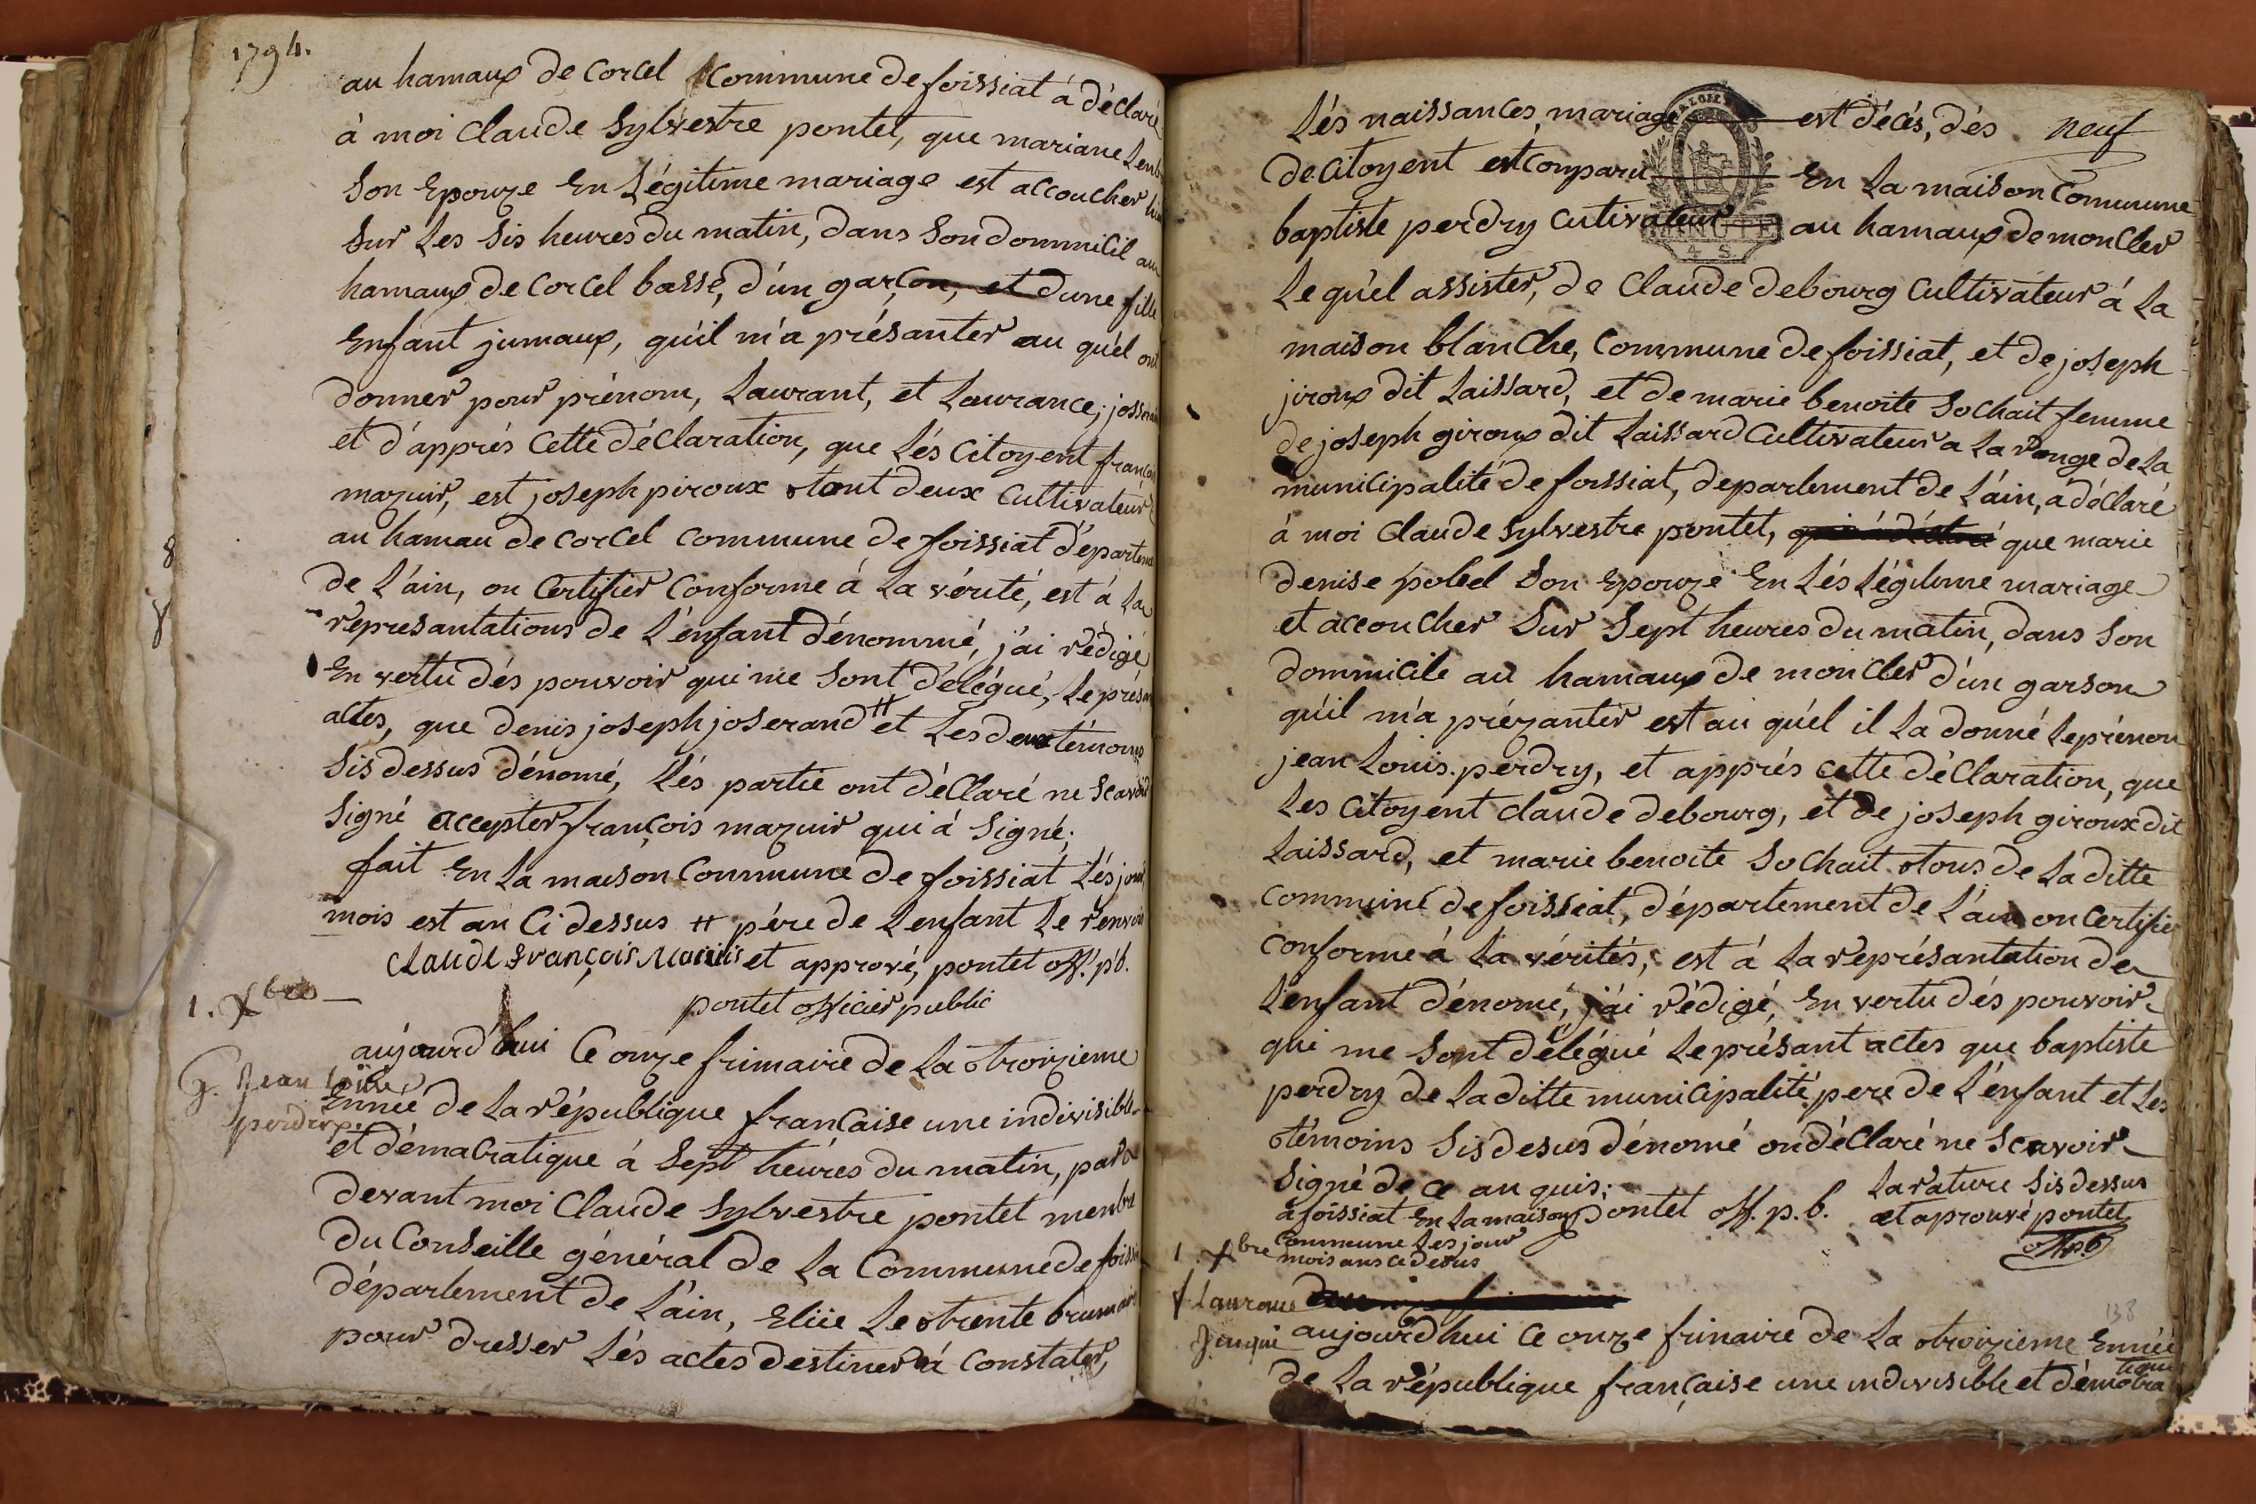 1794.
au hamaux de Corcel Commune de foissiat á déclaré
à moi Claude Sylvestre pontet, que mariane
Son Epouze En Légitime mariage est accoucher
Sur Les Sis heures du matin, dans Son dommicil au
hamaux de Corcel basse, d'un garçon, et dune fille
Enfant jumaux, qu'il m'a présanter au qu'el ont
donner pour prénom, Laurant, et Laurance,
et d'apprés Cette déClaration, que Lés Citoyent
mazuir, est joseph piroux tout deux Cultivateur
au hamau de Corcel Commune de foissiat
de L'ain, on Certifier Conforme à La vérité, est à La
représantations de L'enfant dénommé, j'ai rédigé
En vertu dés pouvoir qui me Sont délégué, Le
actes, que denis joseph joserand # et Les deux témoins
Sis dessus dénomé, Lés partie ont déClaré ne Scavoir
Signé accepter françois mazuir qui á Signé;
fait En La maison Commune de foissiat Lés jour
mois est an Ci dessus # pére de L'enfant Le renvoi
Claude François et apprové, pontet off. pb.
pontet officier public
1. Xbre
G. Jean Louis
perdry
aujourd'hui Ce onze frimaire de La troizieme
Ennée de La république francaise une indivisible
et démacratique à Sept heures du matin, par
devant moi Claude Sylvestre pontet menbre
du Conseille général de La Commune de
département de L'ain, Eliie Le trente brumaire
pour dresser Lés actes destiner á Constater,
Lés naissances, mariage est décés, dés neuf
de Citoyent est Conparu En La maison Commune
baptiste perdry Cutivateur au hamaux de monCler
Le qu'el assister, de Claude debourg Cultivateur á La
maison blanChe, Commune de foissiat, et de joseph
jiroux dit Laissard, et de marie benoite SoChait femme
de joseph giroux dit Laissard Cultivateur a La de La
municipalité de foissiat, departement de L'ain, á déClaré
à moi Claude Sylvestre pontet, que marie
denise Son Epouze En Lés Légitime mariage
et accoucher Sur Sept heures du matin, dans Son
dommicile au hamaux de monCler d'un garson
qu'il m'a prézanter est au qu'el il La donné Le prénom
jean Louis perdry, et apprés Cette déClaration, que
Les Citoyent Claude debourg, et de joseph giroux dit
Laissard, et marie benoite SoChait tous de La ditte
Commune de foissiat, département de L'ain on Certifier
Conforme á La vérités, est á La représantation de
L'enfant dénomé, j'ái rédigé, En vertu dés pouvoir
qui me Sont délégué Le présant actes que baptiste
perdry de La ditte municipalité pere de L'enfant et Les
témoins Sis desus dénomé on déClaré ne Scavoir
Signé de Ce an quis;
a foissiat En La maison pontet off. p. b.
Commune Les jour
mois ans Ci desus
La rature Sis dessus
et aprouvé pontet
off p b
1. Xbre
f Laurance
aujourd'hui Ce onze frimaire de La troizieme Ennée
138
de La république française une indivisible et démocra
tique